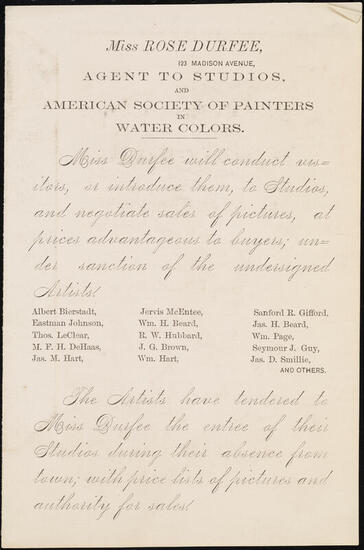 Miss ROSE DURFEE,
123 MADISON AVENUE,
AGENT TO STUDIOS,
AND
AMERICAN SOCIETY OF PAINTERS
IN
WATER COLORS.
Miss Durfee will conduct vis=
itors, or introduce them, to Studios,
and negotiate sales of pictures, at
prices advantageous to buyers; un=
der sanction of the undersigned
Artists!
Albert Bierstadt, Jervis McEntee, Sanford R. Gifford,
Eastman Johnson, Wm. H. Beard, Jas. H. Beard,
Thos. LeClear, R. W. Hubbard, Wm. Page,
M. F. H. DeHaas, J. G. Brown, Seymour J. Guy,
Jas. M. Hart, Wm. Hart, Jas. D. Smillie,
AND OTHERS.
The Artists have tendered to
Miss Durfee the entree of their
Studios during their absence from
town; with price lists of pictures and
authority for sales!